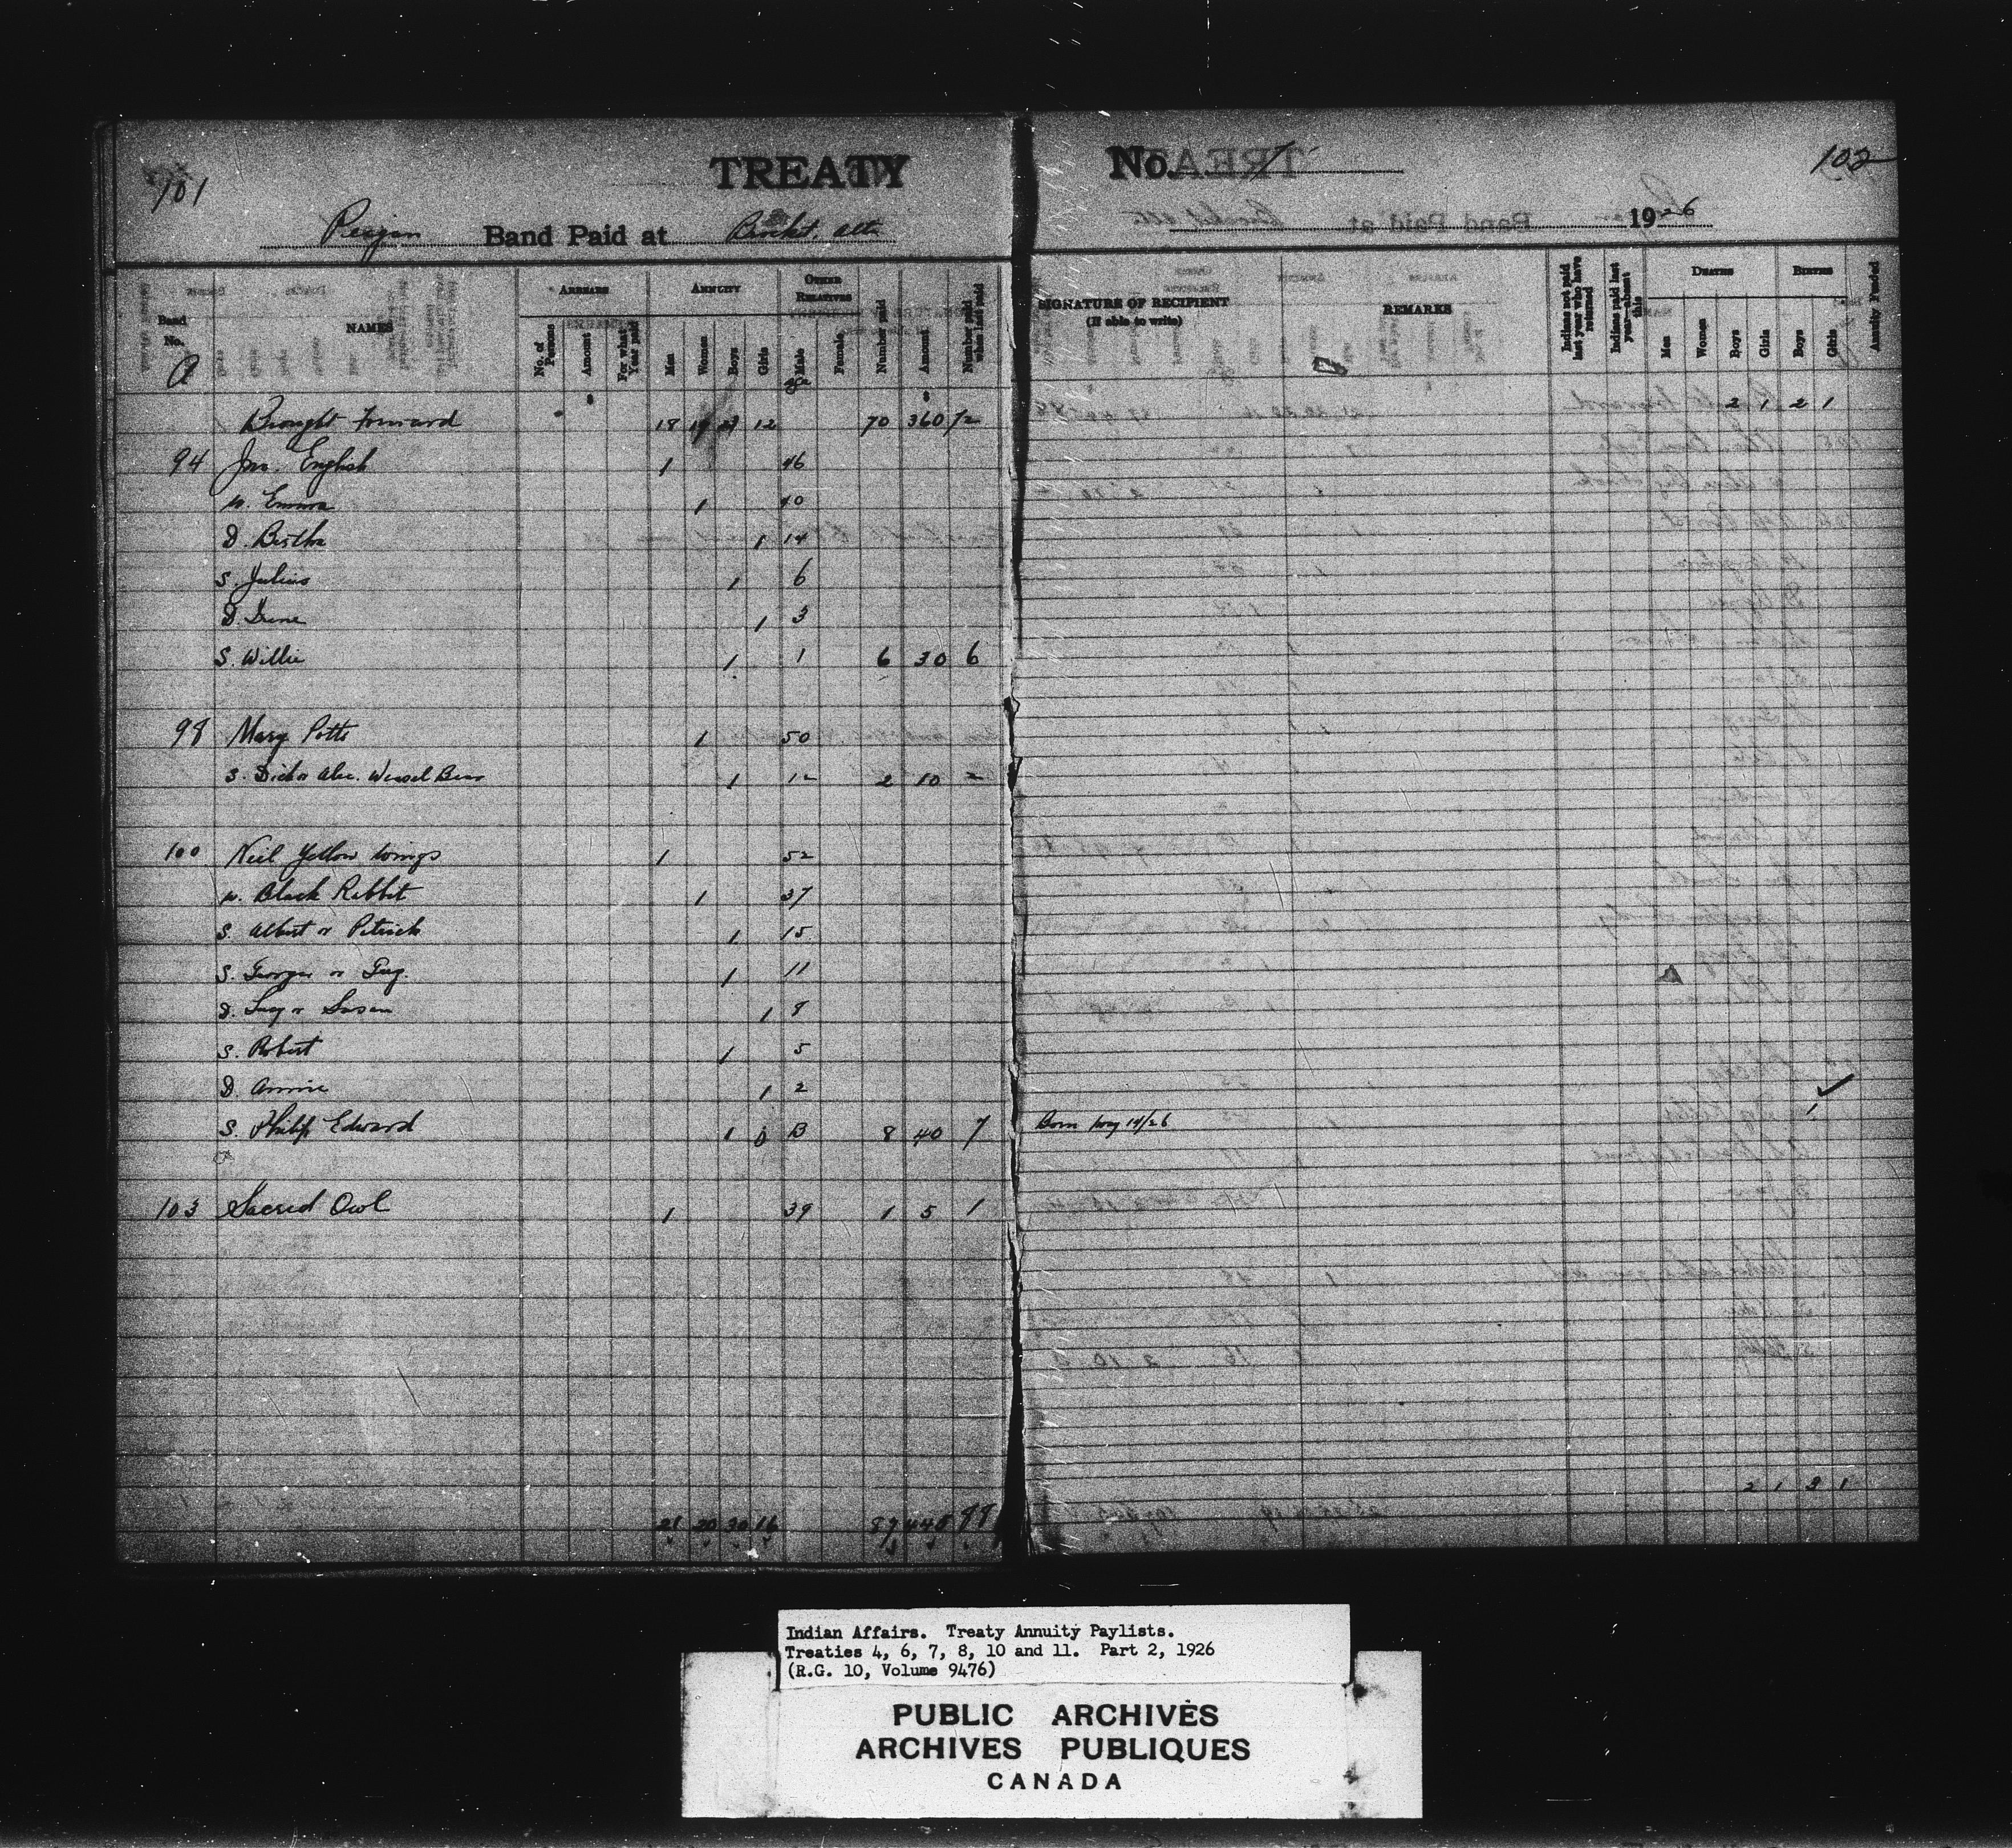 101
TREATY
No. 7
102
Peigan Band Paid at Brocket, Alta
1926
Band No.
NAMES
ARREARS
No. of Persons
Amount
For what Year paid
ANNUITY
Men
Women
Boys
Girls
OTHER RELATIVES
Male
Female
Number paid
Amount
Number paid when last paid
SIGNATURE OF RECIPIENT
(If able to write)
REMARKS
Indians not paid last year who have returned
Indians paid last year—absent this
DEATHS
Men
Women
Boys
Girls
BIRTHS
Boys
Girls
Annuity Funded
A
Age
Brought forward 18 12 70 360 72 2 1 2 1
94 Jno. English 1 46
w. Emma 1 40
D. Bertha 1 14
S. Julius 1 6
D. Irene 1 3
S. Willie 1 1 6 30 6
98 Mary Potts 1 50
S. Dick or Alec. Weasel Bear 1 12 2 10 2
100 Neil Yellow Wings 1 52
w. Black Rabbit 1 37
S. Albert or Patrick 1 15
S. George or 1 11
D. Lucy or Susan 1 8
S. Robert 1 5
D. Annie 1 2
S. Philip Edward 1 B 8 40 7 Born 14/26 1
103 Sacred Owl 1 39 1 5 1
21 20 30 16 87 440 88 2 1 3 1
Indian Affairs. Treaty Annuity Paylists.
Treaties 4, 6, 7, 8, 10 and 11. Part 2, 1926
(R.G. 10, Volume 9476)
PUBLIC ARCHIVES
ARCHIVES PUBLIQUES
CANADA